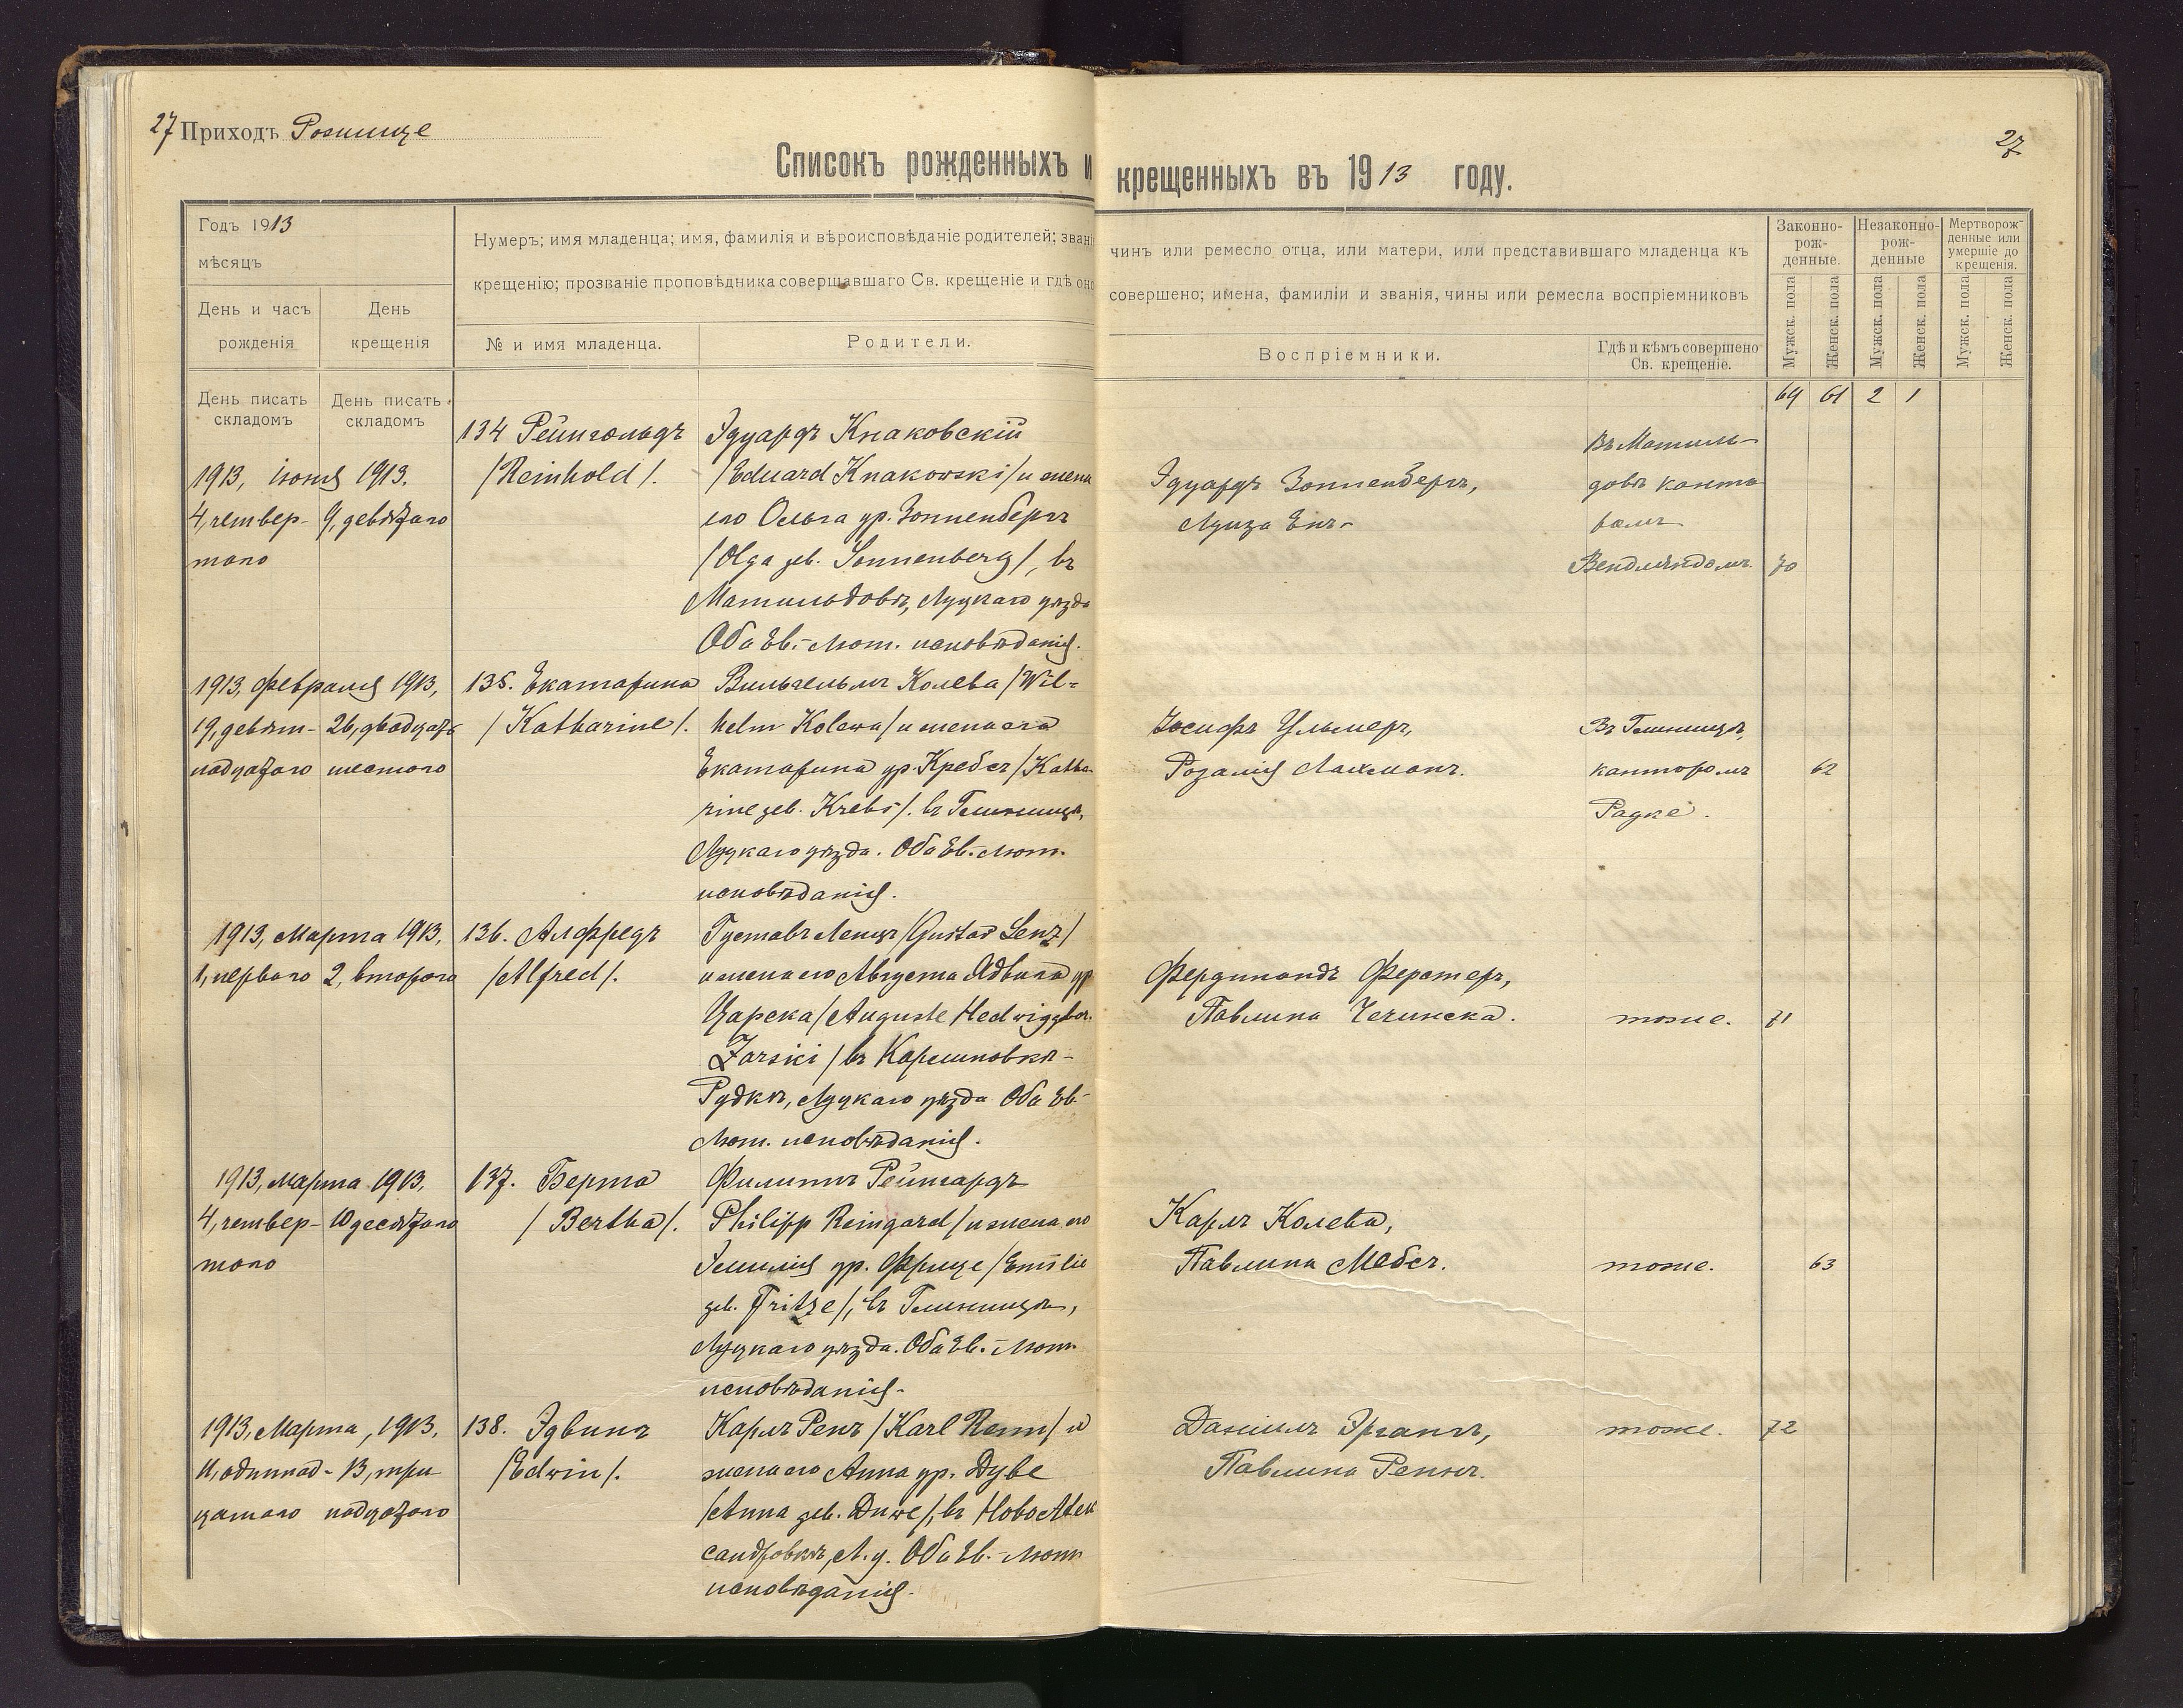 27 Приходъ Рожище
27
Списокъ рожденныхъ и крещенныхъ въ 1913 году.
Годъ 1913
мѣсяцъ
День и часъ рожденія
День крещенія
День писать складомъ
День писать складомъ
Нумеръ; имя младенца; имя, фамилія и вѣроисповѣданіе родителей; звані
крещенію; прозваніе проповѣдника совершавшаго Св. крещеніе и гдѣ оно
№ и имя младенца.
Родители.
чинъ или ремесло отца, или матери, или представившаго младенца къ
совершено; имена, фамиліи и званія, чины или ремесла воспріемниковъ
Воспріемники.
Гдѣ и кѣмъ совершено
Св. крещеніе.
Законно-
рож-
денные.
Незаконно-
рож-
денные
Мертворож-
денные или
умершіе до
крещенія.
Мужск. пола
Женск. пола
Мужск. пола
Женск. пола
Мужск. пола
Женск. пола
69 61 2 1
1913, іюня 1913.
4, четвер- 9, девятаго
таго
134 Рейнгольдъ
/Reinhold/.
Эдуардъ Кнаковскій
/Eduard Knakowski/ и жена
его Ольга ур. Зонненбергъ
/Olga geb. Sonnenberg/, въ
Матильдовѣ, Луцкаго уѣзда
Оба Ев.-Лют. исповѣданія.
Эдуардъ Зонненбергъ,
Луиза Енъ-
Въ Матиль-
довѣ канто
ромъ
Вендляндомъ
70
1913, февраля 1913,
19, девят- 26, двадцать
надцатаго шестого
135. Екатарина
/Katharine/.
Вильгельмъ Колева /Wil=
helm Kolewa/ и жена его
Екатарина ур. Кребсъ /Katha-
rine geb. Krebs/. въ Глинищѣ,
Луцкаго уѣзда. Оба Ев.-Лют.
исповѣданія.
Іосифъ Ульмеръ,
Розалія Лахманъ.
Въ Глинищѣ,
канторомъ
Радке.
62
1913, Марта 1913,
1, перваго 2, второго
136. Алфредъ
/Alfred/.
Густавъ Ленцъ /Gustav Lenz/
и жена его Августа Ядвига ур
Царска /Auguste Hedwig geb.
Zarski/ въ Карлиновкѣ-
Рудкѣ, Луцкаго уѣзда Оба Ев.-
Лют. исповѣданія.
Фердинандъ Ферстеръ,
Павлина Чечинска.
тоже.
71
1913, марта 1913,
4, четвер- 10 десятаго
таго
137. Берта
/Bertha/.
Филиппъ Рейнгардъ
Philipp Reingard/ и жена его
Эмилія ур. Фрице /Emilie
geb. Fritze/, въ Глинищѣ,
Луцкаго уѣзда. Оба Ев.-Лют.
исповѣданія.
Карлъ Колева,
Павлина Мебсъ.
тоже.
63
1913, Марта, 1913.
11, одиннад- 13, три
цатаго надцатаго
138. Эдвинъ
/Edwin/.
Карлъ Ренъ /Karl Renn/ и
жена его Анна ур. Дуве
/Anna geb. Duwe/, въ Ново Алек
сандровкѣ, Л. у. Оба Ев.-Лют
исповѣданія.
Даніилъ Эрганъ,
Павлина Ренъ.
тоже.
72